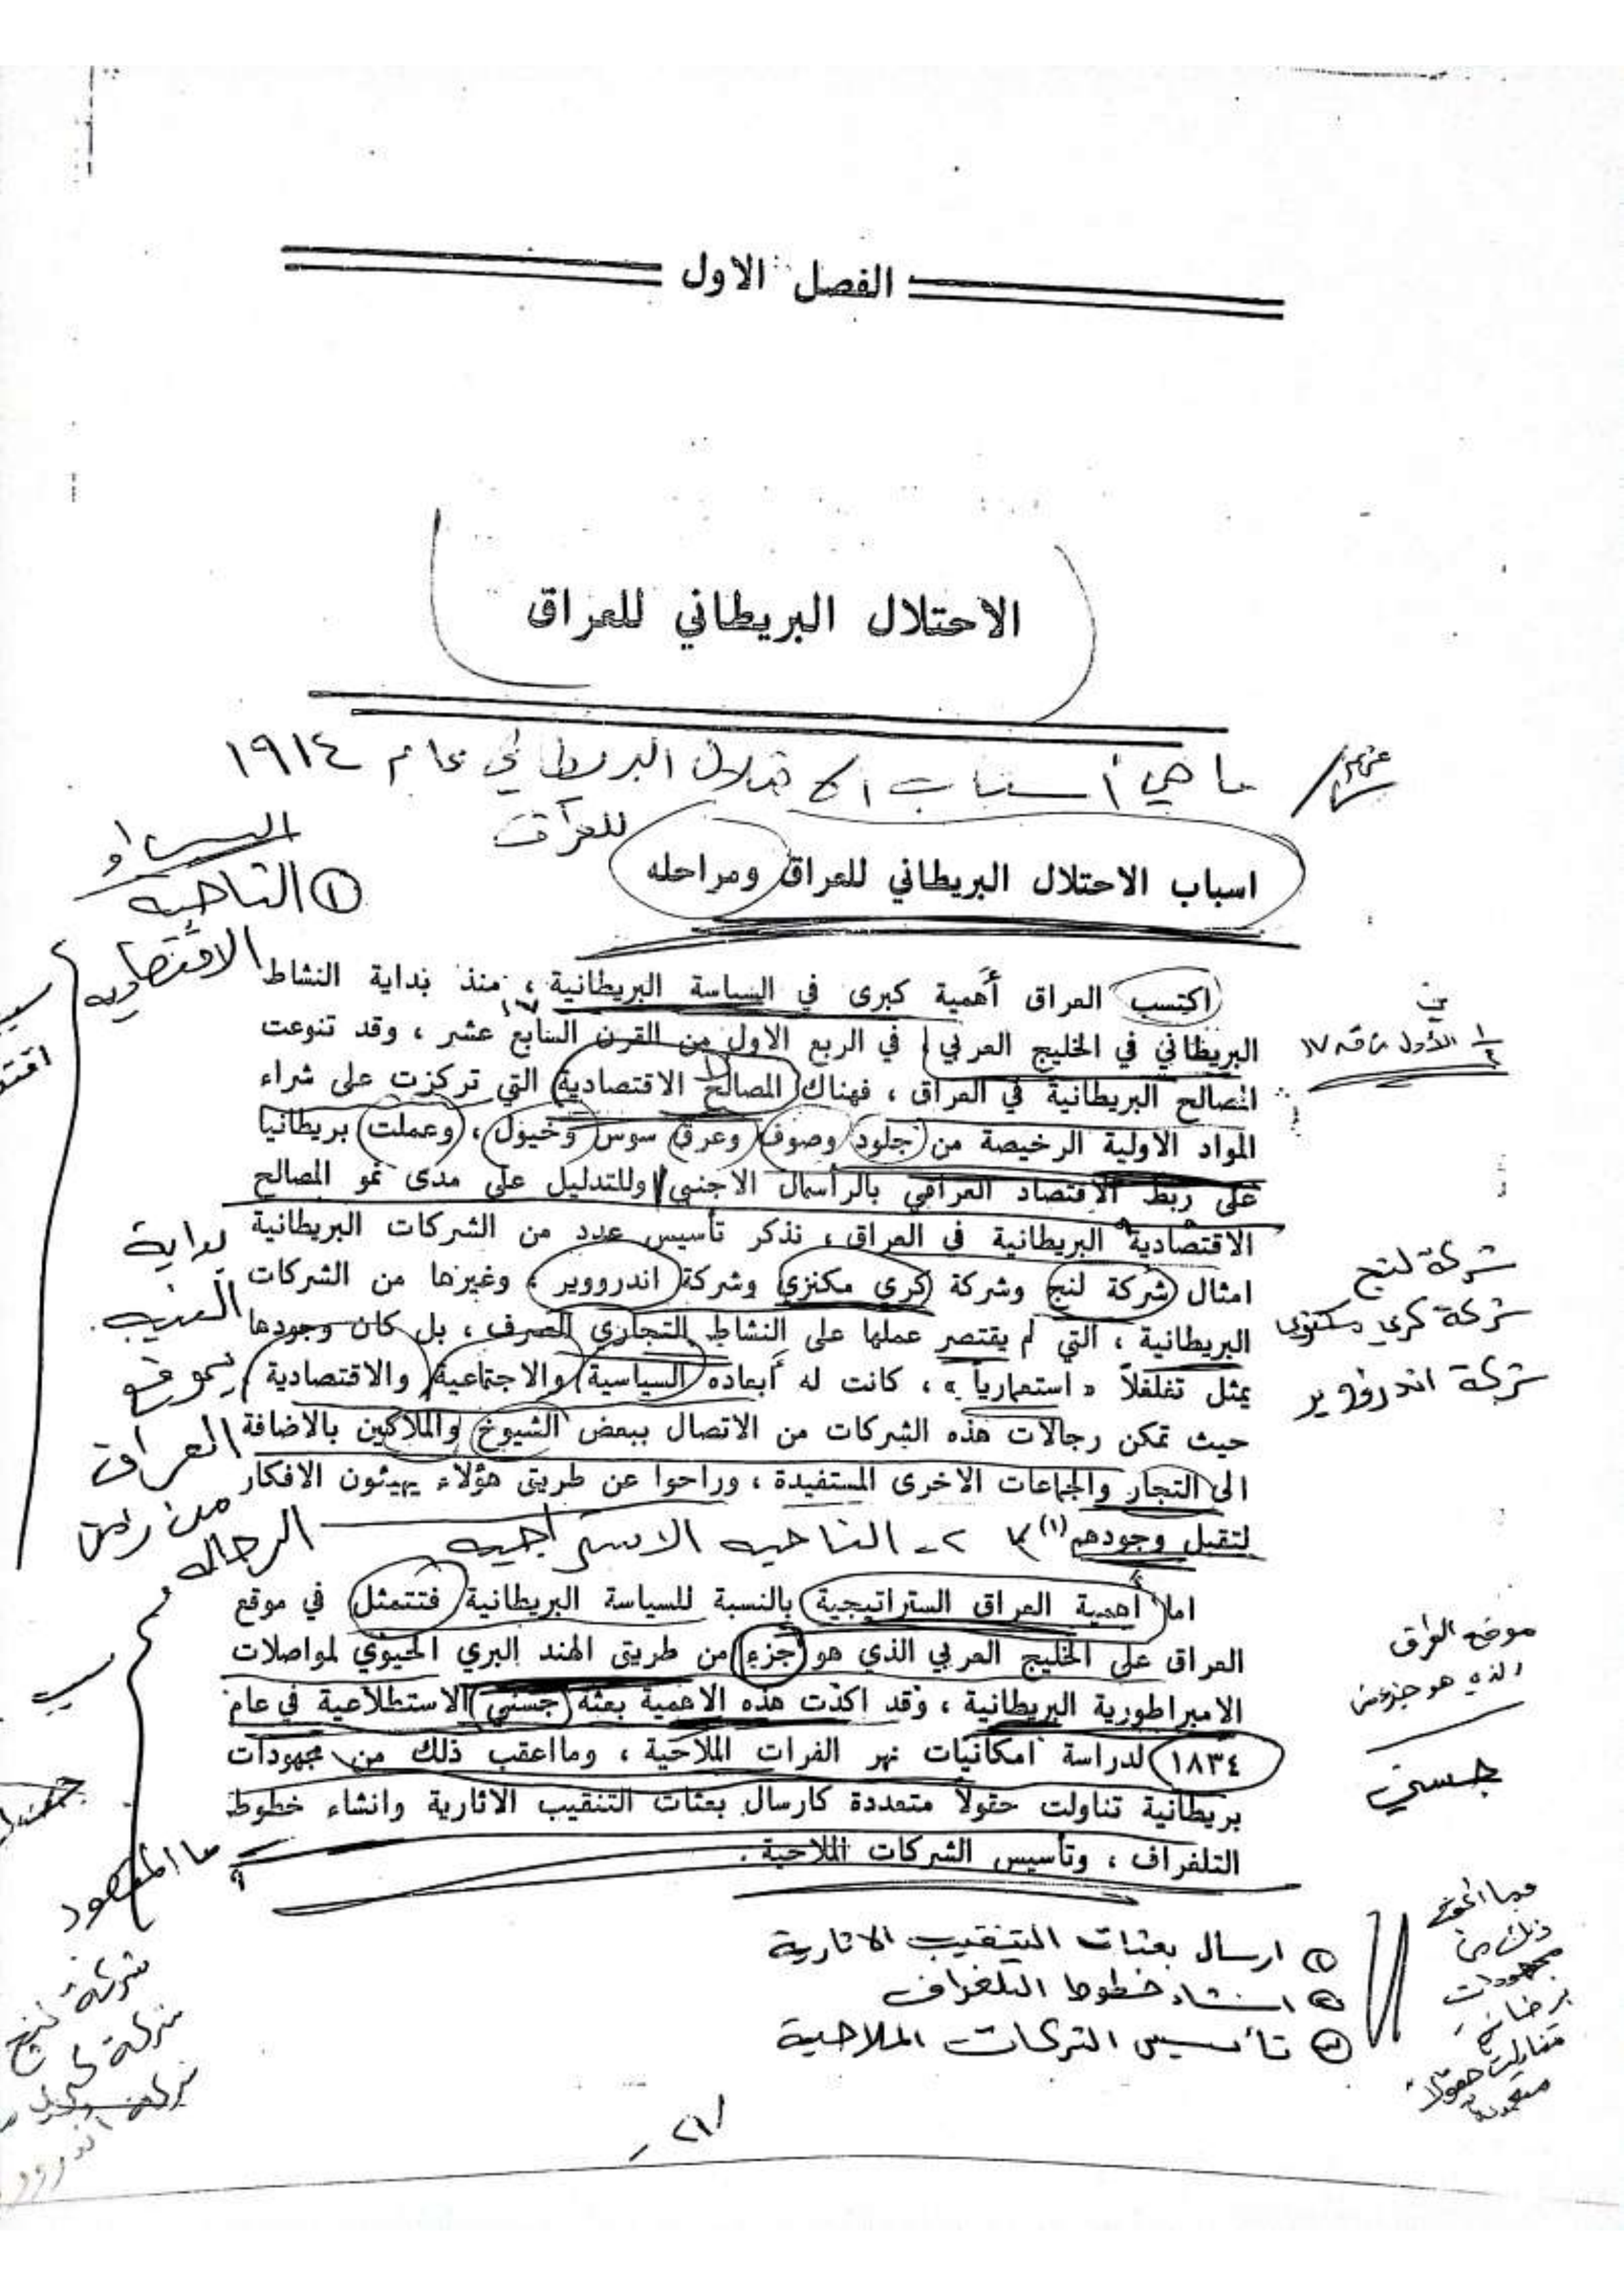 الفصل الاول
الاحتلال البريطاني للعراق
ما هي أسباب الاحتلال البريطاني عام ١٩١٤
للعراق
اسباب الاحتلال البريطاني للعراق ومراحله
① الناحية
الاقتصاديه
اكتسب العراق أهمية كبرى في السياسة البريطانية ، منذ بداية النشاط
البريطاني في الخليج العربي في الربع الاول من القرن السابع عشر ، وقد تنوعت
١٧
المصالح البريطانية في العراق ، فهناك المصالح الاقتصادية التي تركزت على شراء
المواد الاولية الرخيصة من جلود وصوف وعرق سوس وخيول ، وعملت بريطانيا
على ربط الاقتصاد العراقي بالرأسمال الاجنبي وللتدليل على مدى نمو المصالح
الاقتصادية البريطانية في العراق ، نذكر تأسيس عدد من الشركات البريطانية
امثال شركة لنج وشركة كري مكنزي وشركة اندرووير ، وغيرها من الشركات
البريطانية ، التي لم يقتصر عملها على النشاط التجاري الصرف ، بل كان وجودها
يمثل تغلغلاً « استعمارياً » ، كانت له أبعاده السياسية والاجتماعية والاقتصادية ,
حيث تمكن رجالات هذه الشركات من الاتصال ببعض الشيوخ والملاكين بالاضافة
الى التجار والجماعات الاخرى المستفيدة ، وراحوا عن طريق هؤلاء يهيئون الافكار
لتقبل وجودهم (١)
٢ـ الناحيه الاستراجيه
شركة لنج
شركة كري مكنزي
شركة اندرووير
بداية
العراق
اما أهمية العراق الستراتيجية بالنسبة للسياسة البريطانية فتتمثل في موقع
العراق على الخليج العربي الذي هو جزء من طريق الهند البري الحيوي لمواصلات
الامبراطورية البريطانية ، وقد اكدت هذه الاهمية بعثة جسني الاستطلاعية في عام
١٨٣٤ لدراسة امكانيات نهر الفرات الملاحية ، ومااعقب ذلك من مجهودات
بريطانية تناولت حقولاً متعددة كارسال بعثات التنقيب الاثارية وانشاء خطوط
التلغراف ، وتأسيس الشركات الملاحية .
موقع العراق
الذي هو جزء من
جسني
ما المقصود
شركة لنج
① ارسال بعثات التنقيب الاثارية
② انشاء خطوط التلغراف
③ تأسيس الشركات الملاحية
ذلك من
مجهودات
٢١